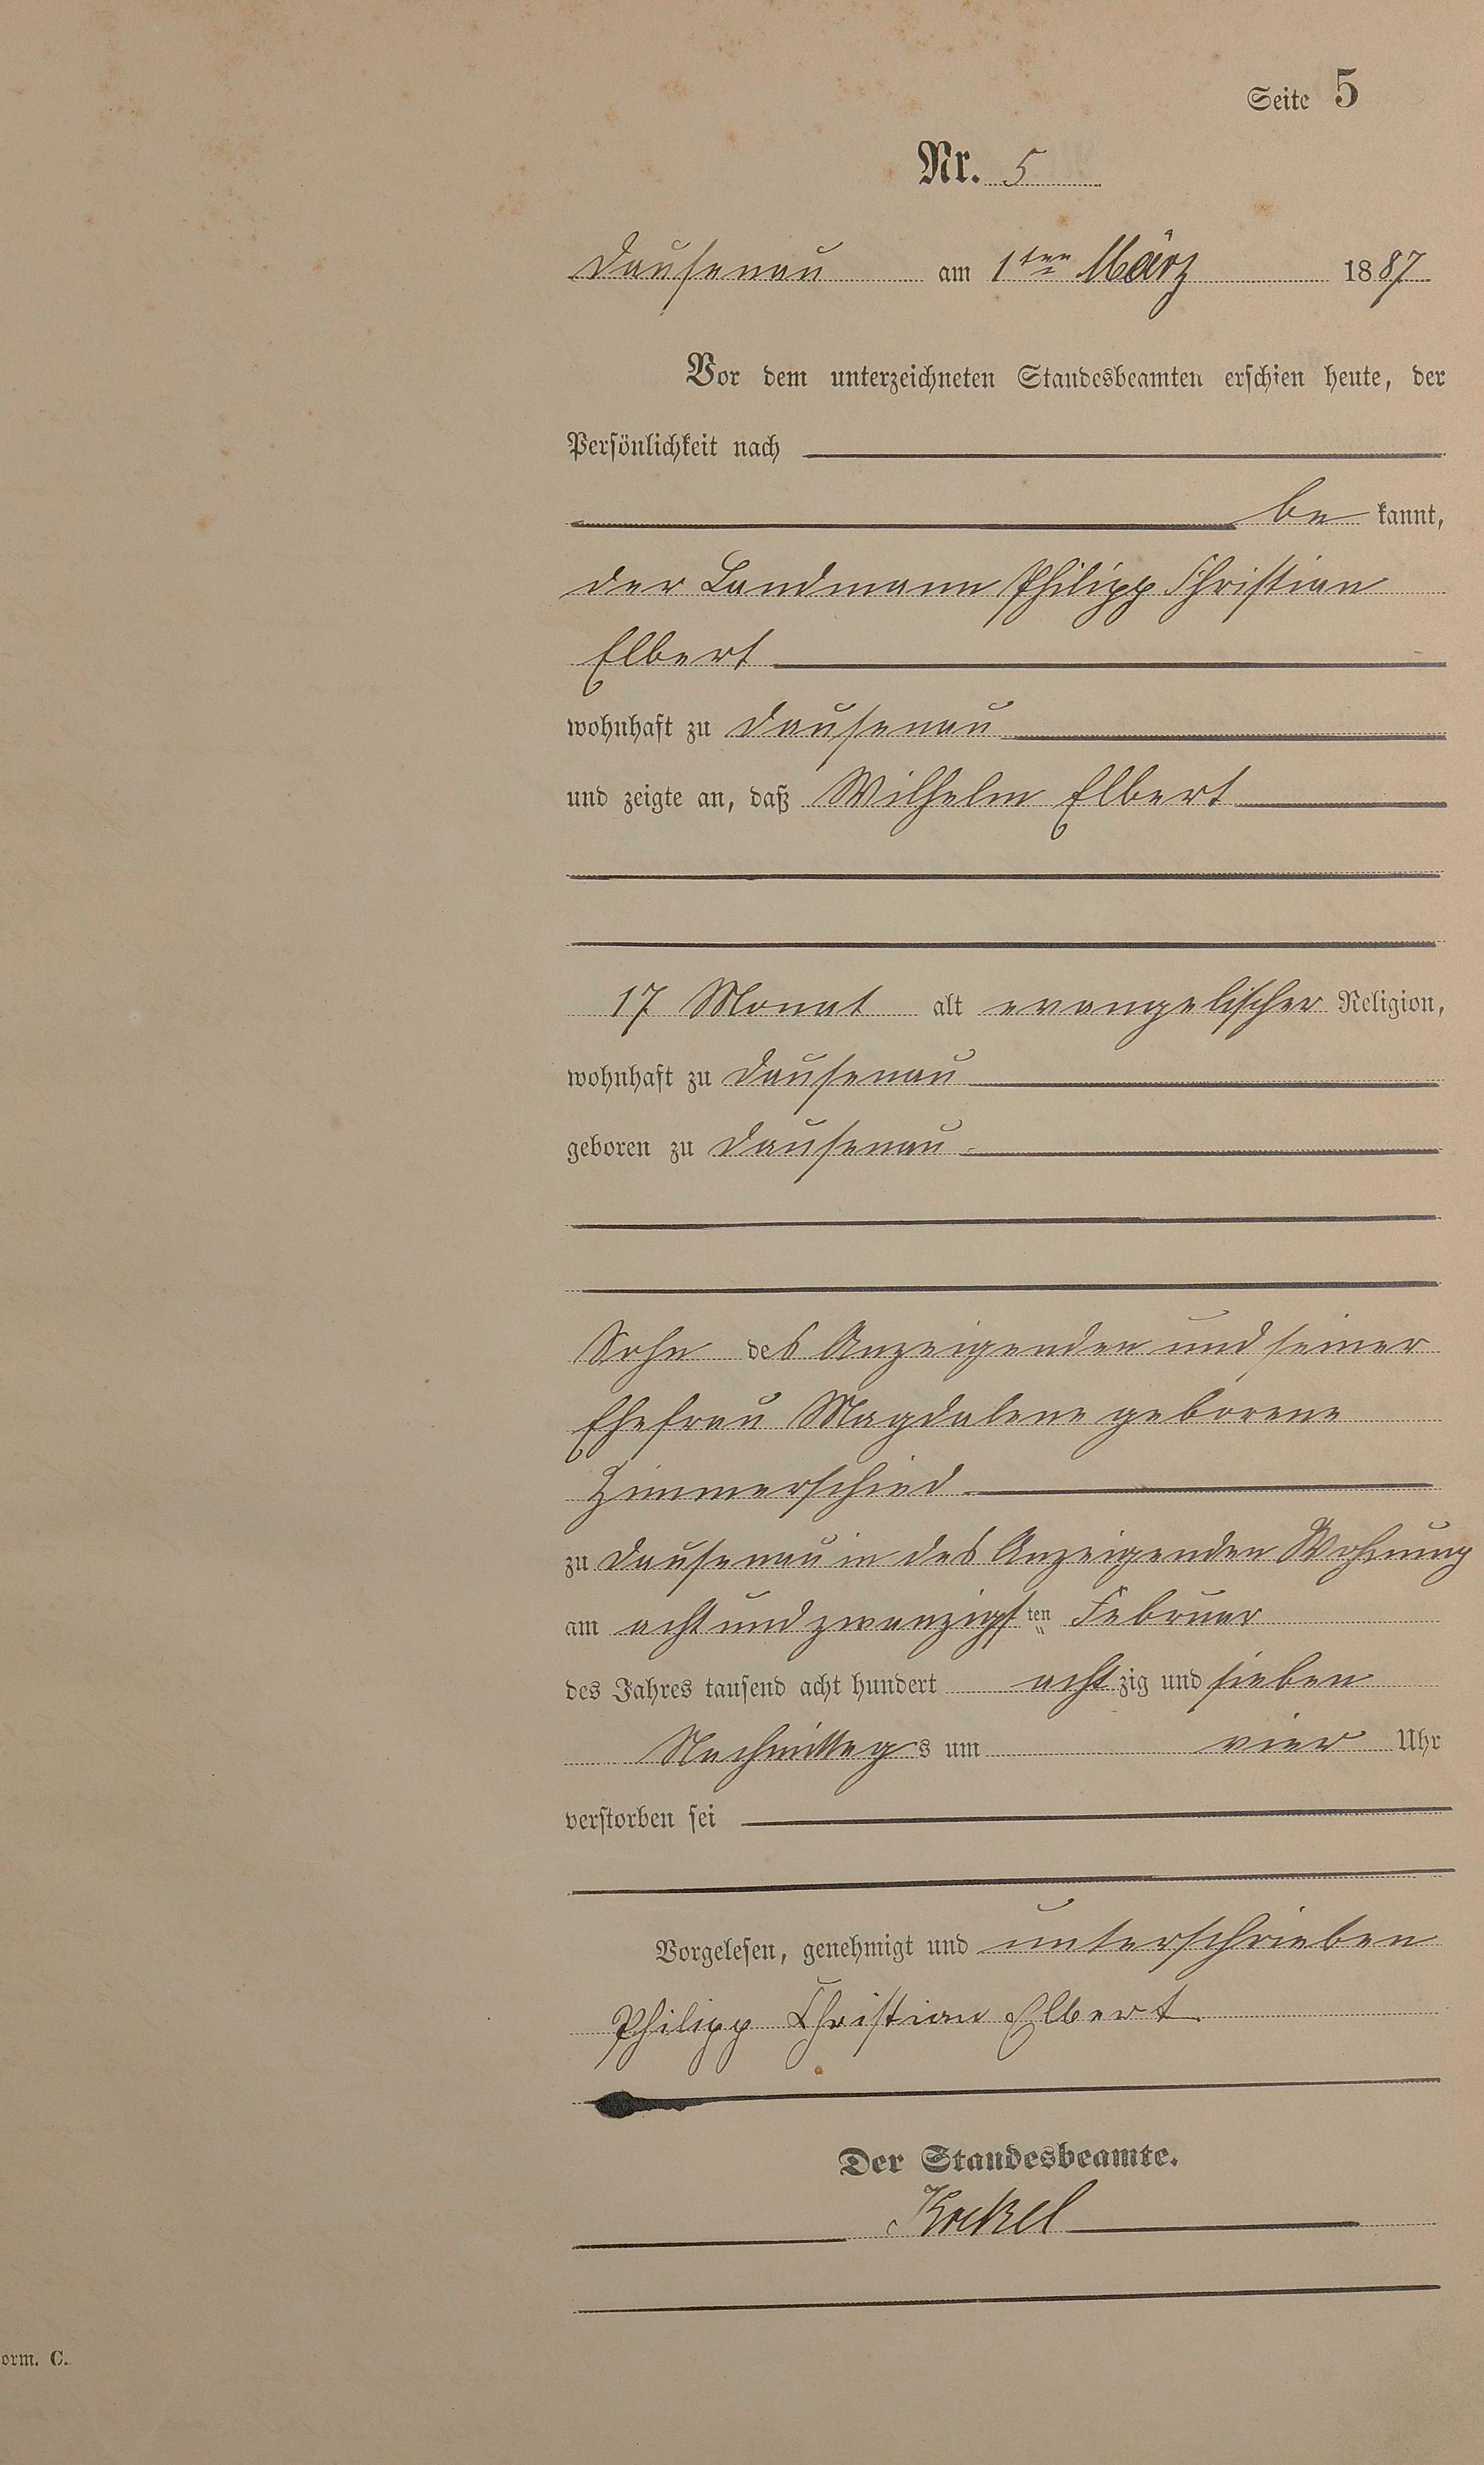 Seite 5
Nr. 5
Dausenau am 1ten März 1887
Vor dem unterzeichneten Standesbeamten erschien heute, der
Persönlichkeit nach
be kannt,
der Landmann Philipp Christian
Elbert
wohnhaft zu Dausenau
und zeigte an, daß Wilhelm Elbert
17 Monat alt evangelischer Religion,
wohnhaft zu Dausenau
geboren zu Dausenau
Sohn des Anzeigenden und seiner
Ehefrau Magdalene geborene
Zimmerschied
zu Dausenau in des Anzeigenden Wohnung
am acht und zwanzigsten Februar
des Jahres tausend acht hundert achtzig und sieben
Nachmittags um vier Uhr
verstorben sei
Vorgelesen, genehmigt und unterschrieben
Philipp Christian Elbert
Der Standesbeamte.
orm. C.